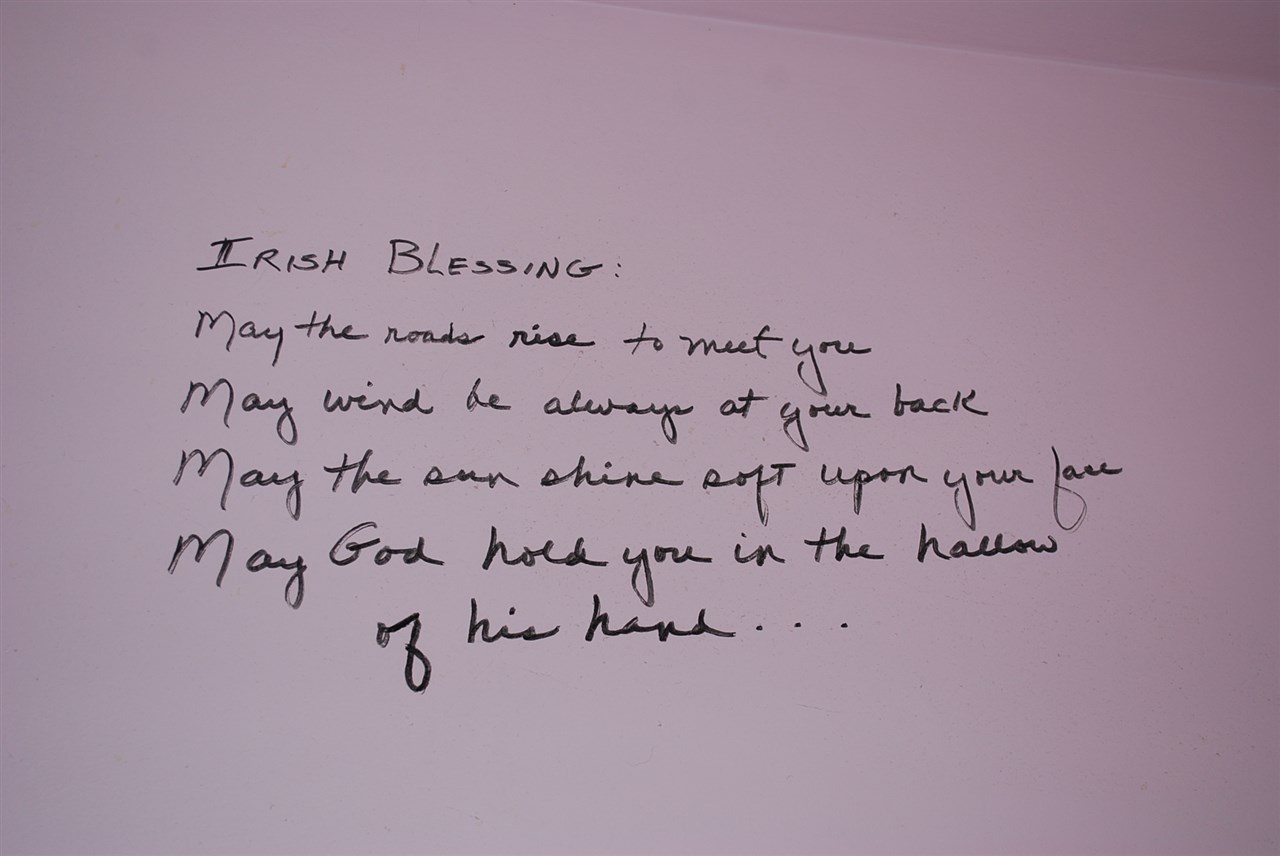 IRISH BLESSING:
May the roads rise to meet you
May wind be always at your back
May the sun shine soft upon your face
May God hold you in the hallow
of his hand....